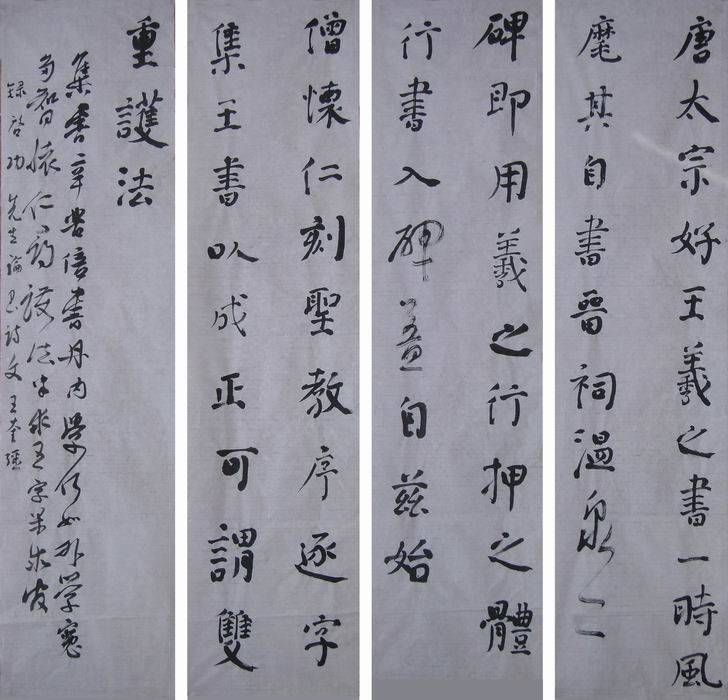 唐太宗好王羲之書一時風
靡其自書晉祠溫泉二
碑即用羲之行押之體
行書入碑蓋自茲始
僧懷仁刻聖教序逐字
集王書以成正可謂雙
重護法
集書辛苦倍書丹內學何如外學寬
多智懷仁尋護法半求王字半求官
錄啓功先生論書詩文王奎